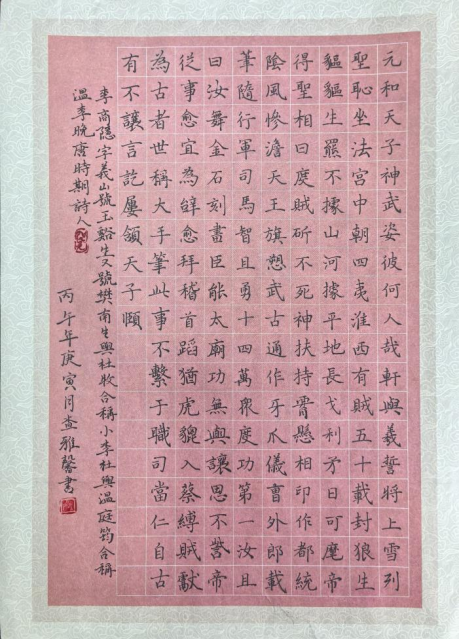 元和天子神武姿彼何人哉軒與羲誓將上雪列
聖恥坐法宮中朝四夷淮西有賊五十載封狼生
貙貙生羆不據山河據平地長戈利矛日可麾帝
得聖相曰度賊斫不死神扶持懸相印作都統
陰風慘澹天王旗愬武古通作牙爪儀曹外郎載
筆隨行軍司馬智且勇十四萬眾度功第一汝且
曰汝舞金石刻畫臣能太廟功無與讓恩不訾帝
從事愈宜為辭愈拜稽首蹈猶虎貔入蔡縛賊獻
為古者世稱大手筆此事不繫于職司當仁自古
有不讓言訖屢頷天子頤
李商隱字義山號玉谿生又號樊南生與杜牧合稱小李杜與溫庭筠合稱
溫李晚唐時期詩人
丙午年庚寅月查雅馨書